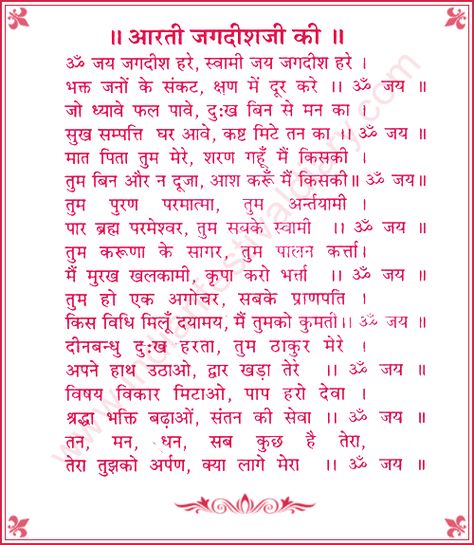 ॥ आरती जगदीशजी की ॥
ॐ जय जगदीश हरे, स्वामी जय जगदीश हरे ।
भक्त जनों के संकट, क्षण में दूर करे ।। ॐ जय ॥
जो ध्यावे फल पावे, दुःख बिन से मन का ।
सुख सम्पत्ति घर आवे, कष्ट मिटे तन का ।। ॐ जय ॥
मात पिता तुम मेरे, शरण गहूँ मैं किसकी ।
तुम बिन और न दूजा, आश करूँ मैं किसकी॥ ॐ जय॥
तुम पुरण परमात्मा, तुम अर्न्तयामी ।
पार ब्रह्म परमेश्वर, तुम सबके स्वामी ।। ॐ जय ॥
तुम करूणा के सागर, तुम पालन कर्त्ता ।
मैं मुरख खलकामी, कृपा करो भर्त्ता ।। ॐ जय ॥
तुम हो एक अगोचर, सबके प्राणपति ।
किस विधि मिलूँ दयामय, मैं तुमको कुमती।। ॐ जय ॥
दीनबन्धु दुःख हरता, तुम ठाकुर मेरे ।
अपने हाथ उठाओ, द्वार खड़ा तेरे ।। ॐ जय ॥
विषय विकार मिटाओ, पाप हरो देवा ।
श्रद्धा भक्ति बढ़ाओं, संतन की सेवा ।। ॐ जय ॥
तन, मन, धन, सब कुछ है तेरा,
तेरा तुझको अर्पण, क्या लागे मेरा ।। ॐ जय ॥